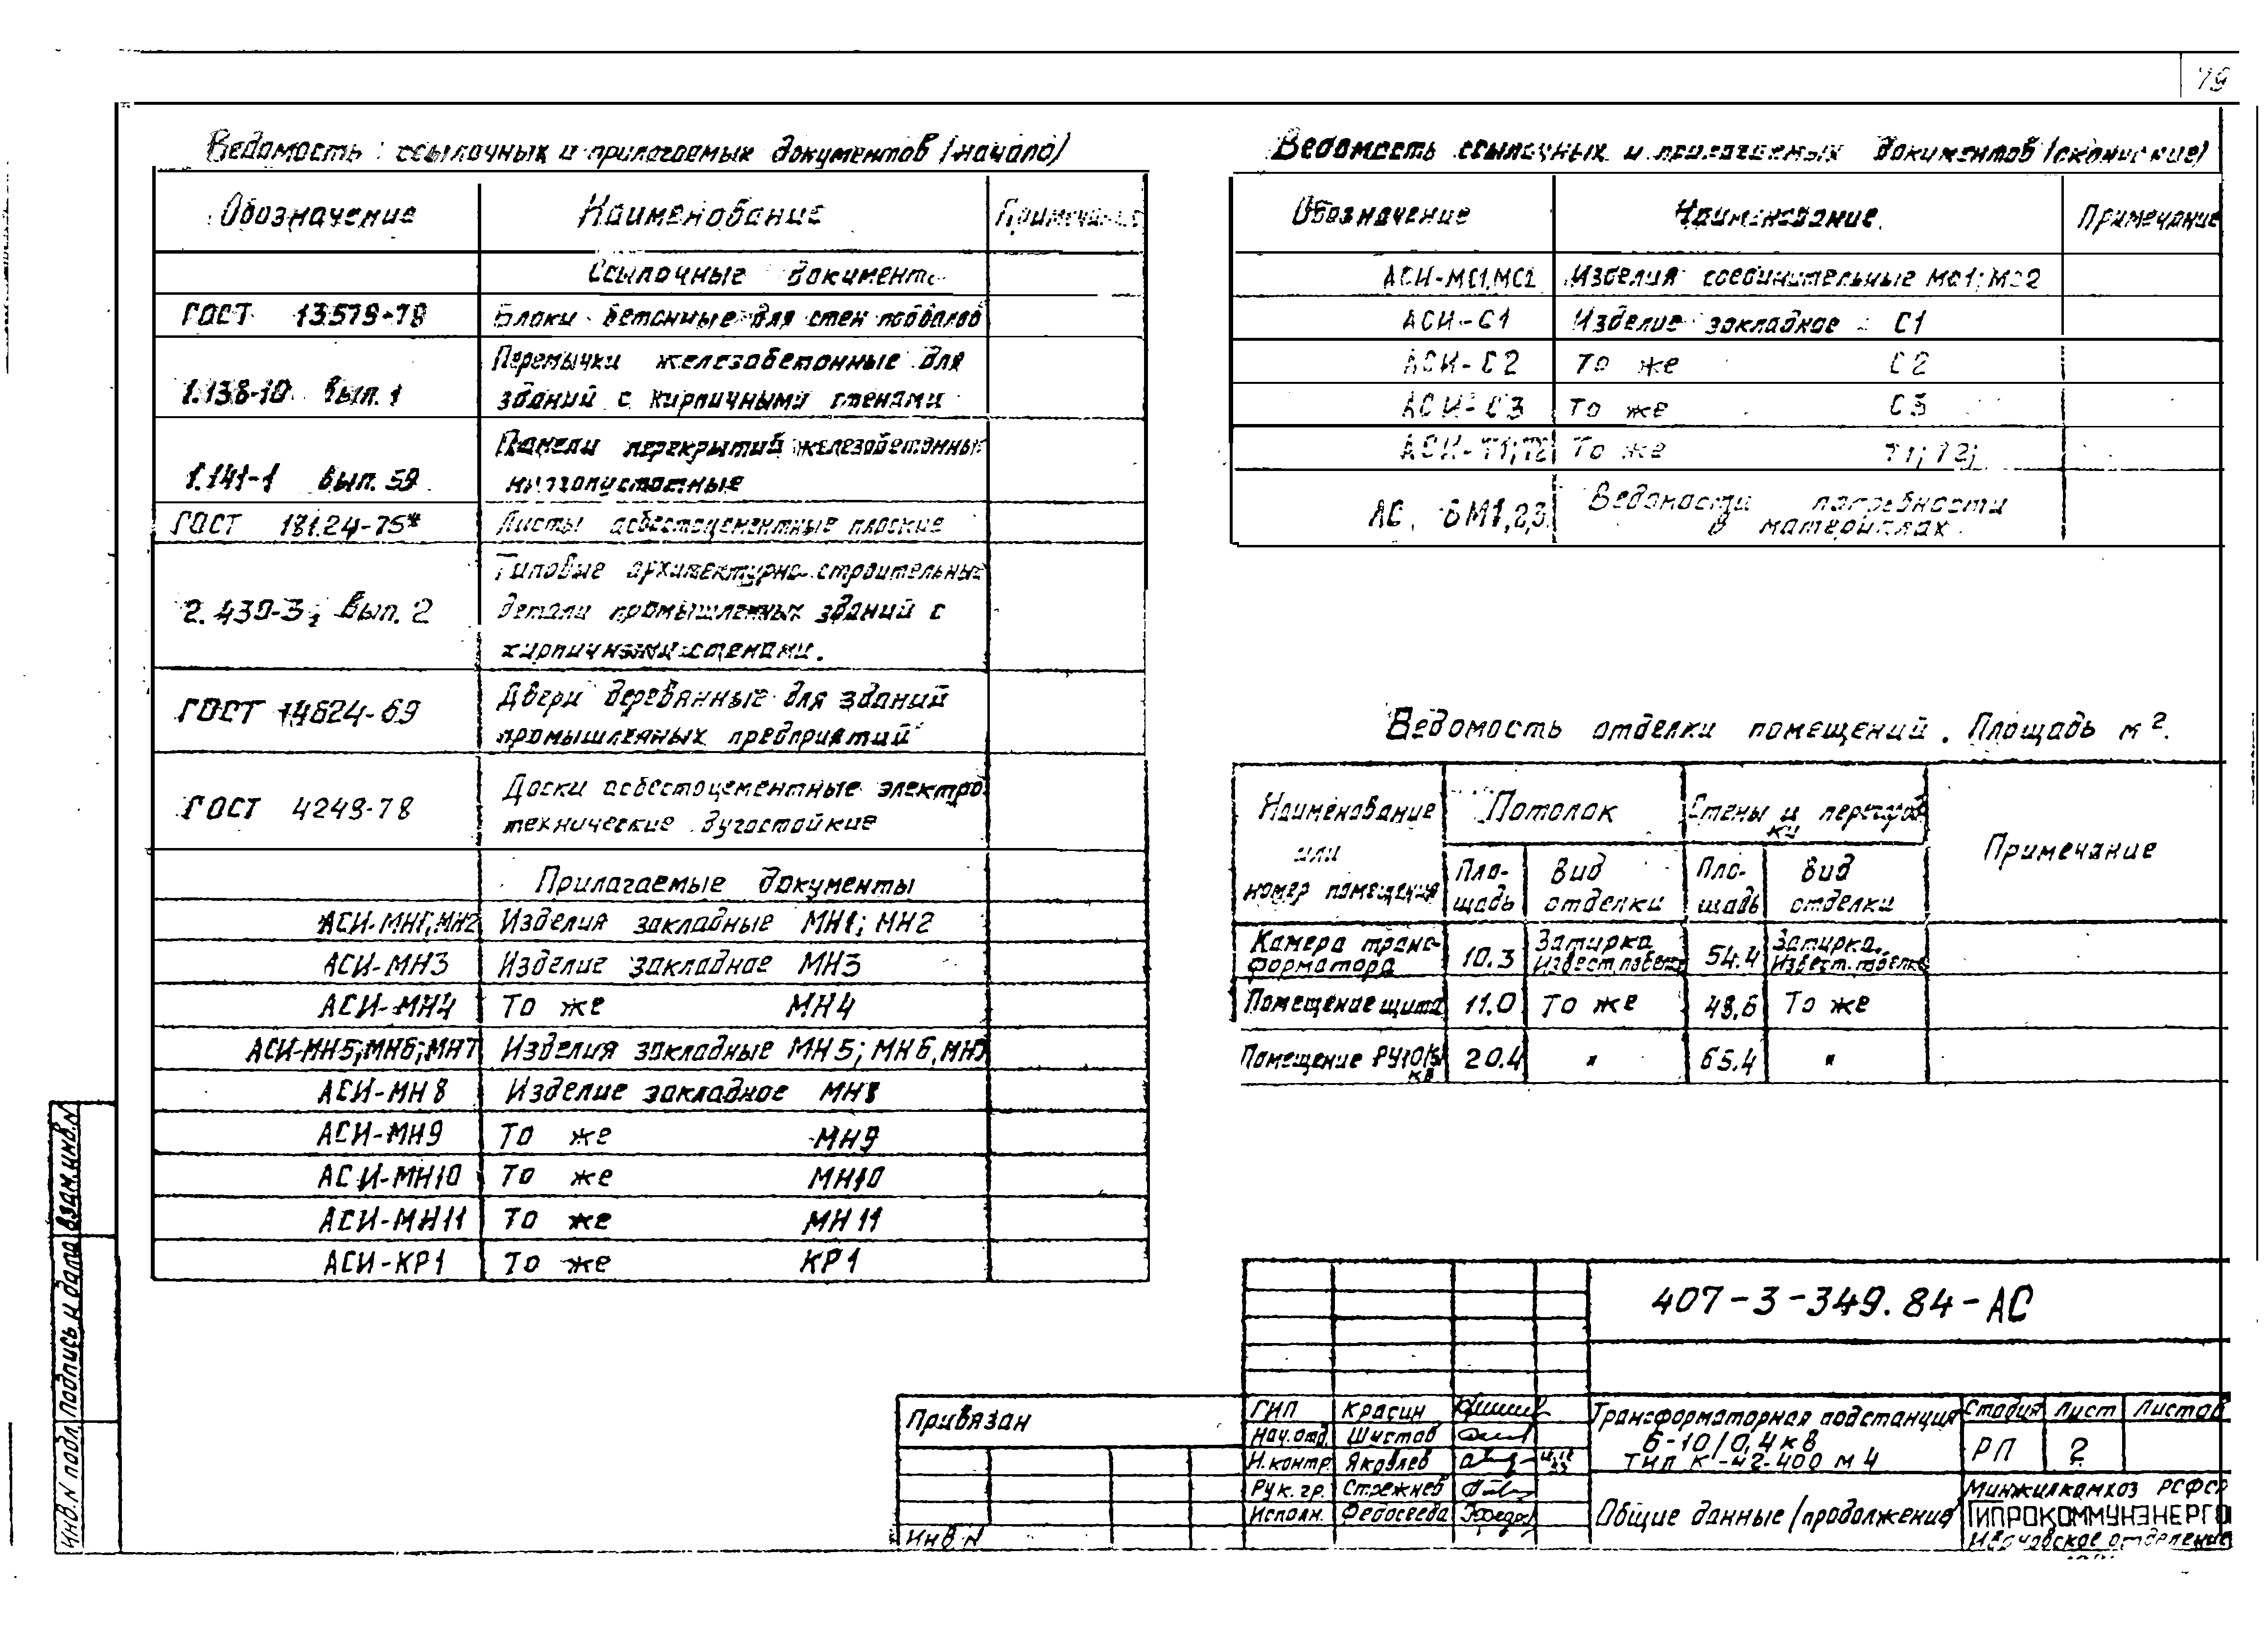 79
Ведомость ссылочных и прилагаемых документов (начало)
Обозначение Наименование Примечание
Ссылочные документы
ГОСТ 13579-78 Блоки бетонные для стен подвалов
1.138-10 Вып. 1 Перемычки железобетонные для
зданий с кирпичными стенами
1.141-1 Вып. 59 Панели перекрытий железобетонные
многопустотные
ГОСТ 18124-75* Листы асбестоцементные плоские
2.430-3, Вып. 2 Типовые архитектурно-строительные
детали промышленных зданий с
кирпичными стенами.
ГОСТ 14624-69 Двери деревянные для зданий
промышленных предприятий
ГОСТ 4248-78 Доски асбестоцементные электро
технические дугостойкие
Прилагаемые документы
АСИ-МН1; МН2 Изделия закладные МН1; МН2
АСИ-МН3 Изделие закладное МН3
АСИ-МН4 То же МН4
АСИ-МН5; МН6; МН7 Изделия закладные МН5; МН6, МН7
АСИ-МН8 Изделие закладное МН8
АСИ-МН9 То же МН9
АСИ-МН10 То же МН10
АСИ-МН11 То же МН11
АСИ-КР1 То же КР1
Ведомость ссылочных и прилагаемых документов (окончание)
Обозначение Наименование Примечание
АСИ-МС1, МС2 Изделия соединительные МС1; МС2
АСИ-С1 Изделие закладное С1
АСИ-С2 То же С2
АСИ-С3 То же С3
АСИ-Т1; Т2 То же Т1; Т2;
АС. ВМ1,2,3 Ведомости потребности
в материалах
Ведомость отделки помещений. Площадь м².
Наименование
или
номер помещения
Потолок
Стены и перегород
ки
Примечание
Пло-
щадь
Вид
отделки
Пло-
щадь
Вид
отделки
Камера транс-
форматора 10.3 Затирка
Извест. побелк 54.4 Затирка.
Извест. побелка
Помещение щита 11.0 То же 48.6 То же
Помещение РУ10(6) кВ 20.4 " 65.4 "
407-3-349.84-АС
Привязан
Инв N
ГИП Красин
Нач. отд. Шустов
Н. контр. Яковлев
Рук. гр. Стрежнев
Исполн. Федосеева
Трансформаторная подстанция
6-10/0,4 кВ
тип К-42-400 м 4
Стадия Лист Листов
РП 2
Общие данные (продолжение)
Минжилкомхоз РСФСР
ГИПРОКОММУНЭНЕРГО
Ивановское отделение
Инв. N подл. Подпись и дата Взам. инв. N